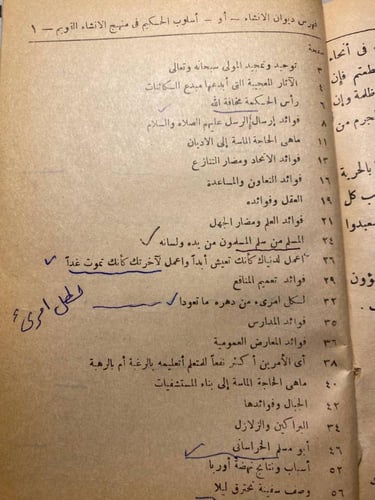 فهرس ديوان الانشاء - أو - أسلوب الحكيم فى منهج الانشاء القويم - ١
صفحة
٣ توحيد وتمجيد المولى سبحانه وتعالى
٤ الآثار العجيبة التى أبدعها مبدع الكائنات
٦ رأس الحكمة مخافة الله
٨ فوائد إرسال الرسل عليهم الصلاة والسلام
١١ ماهى الحاجة الماسة إلى الاديان
١٣ فوائد الاتحاد ومضار التنازع
١٦ فوائد التعاون والمساعدة
١٩ العقل وفوائده
٢١ فوائد العلم ومضار الجهل
٢٤ المسلم من سلم المسلمون من يده ولسانه
٢٦ اعمل لدنياك كأنك تعيش أبداً واعمل لآخرتك كأنك تموت غداً
٢٩ فوائد تعميم المنافع
٣٢ لكل امرىء من دهره ما تعودا
لكل امرئ
٣٥ فوائد المدارس
٣٦ فوائد المعارض العمومية
٣٨ أى الأمرين أكثر نفعاً للمتعلم أتعليمه بالرغبة أم بالرهبة
٤٠ ماهى الحاجة الماسة إلى بناء المستشفيات
٤٢ الجبال وفوائدها
٣٤ البراكين والزلازل
٤٦ أبو مسلم الخراسانى
٥٢ أسباب ونتائج نهضة أوربا
٥٦ وصف سفينة تحترق ليلا
فى أنحاء
فإن
ظلمة وإن
جرم من
بالحرية
كل